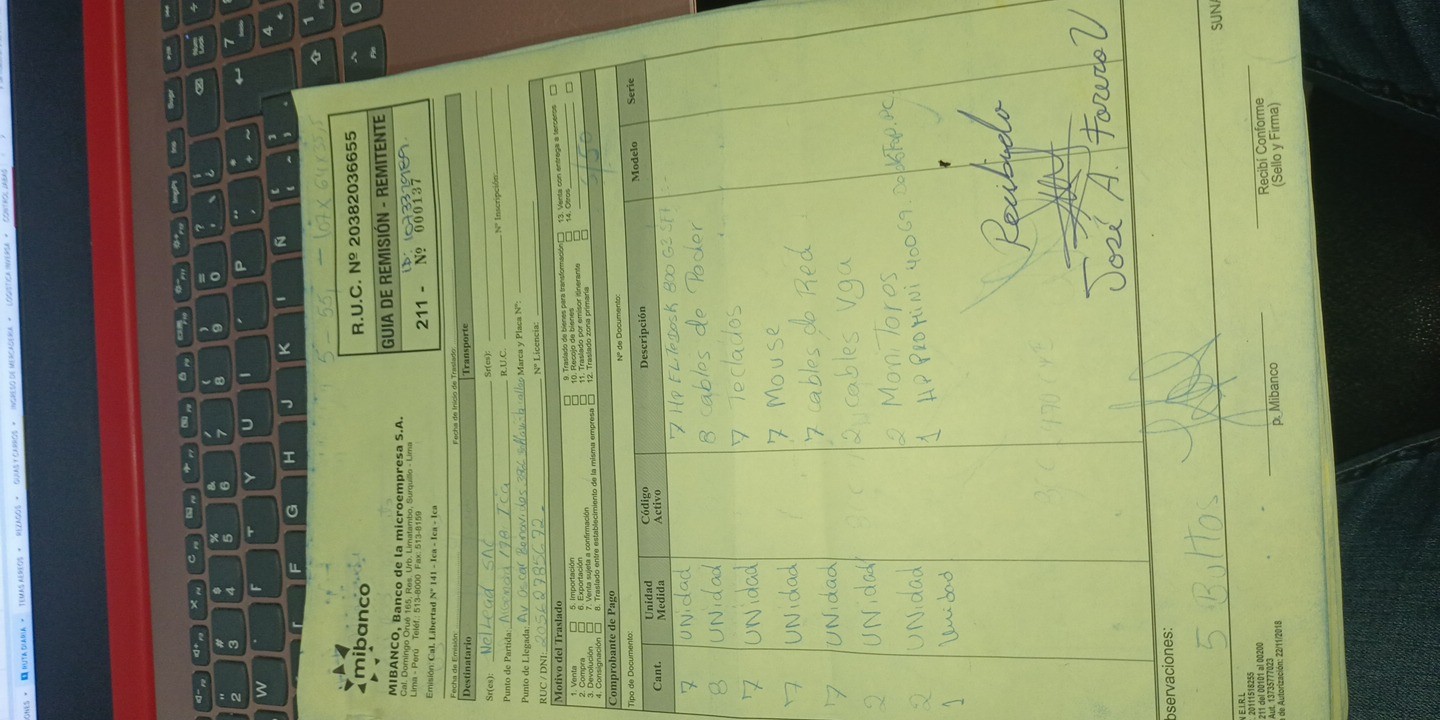 mibanco
MIBANCO, Banco de la microempresa S.A.
Cal. Domingo Orué 165, Res. Urb. Limatambo, Surquillo - Lima
Lima - Perú Teléf.: 513-8000 Fax: 513-8159
Emisión: Cal. Libertad Nº 141 - Ica - Ica - Ica
R.U.C. Nº 20382036655
GUIA DE REMISIÓN - REMITENTE
211 - Nº 000137
Fecha de Emisión:
Fecha de Inicio de Traslado:
Destinatario
Transporte
Sr(es):
Sr(es):
Punto de Partida: Ica
R.U.C.
Nº Inscripción:
Punto de Llegada: Av Oscar Benavides
Marca y Placa Nº:
RUC / DNI: 20562785672
Nº Licencia:
Motivo del Traslado
1. Venta
2. Compra
3. Devolución
4. Consignación
5. Importación
6. Exportación
7. Venta sujeta a confirmación
8. Traslado entre establecimiento de la misma empresa
9. Traslado de bienes para transformación
10. Recojo de bienes
11. Traslado por emisor itinerante
12. Traslado zona primaria
13. Venta con entrega a terceros
14. Otros
Comprobante de Pago
Tipo de Documento:
Nº de Documento:
Cant. Unidad Medida Código Activo Descripción Modelo Serie
7 UNidad 7 Hp ELiTeDesk 800 G2
8 UNidad 8 cables de Poder
7 UNidad 7 Teclados
7 UNidad 7 Mouse
7 UNidad 7 cables de Red
2 UNidad 2 cables Vga
2 UNidad 2 MoniTores
1 Unidad 1 HP PRO MINI 400 G9
Recibido
José A. Forero V
Observaciones:
5 Bultos
p. Mibanco
Recibí Conforme
(Sello y Firma)
SUNA
E.I.R.L
20111518255
211 del 00101 al 00200
Aut. 1373577023
de Autorización: 22/11/2018